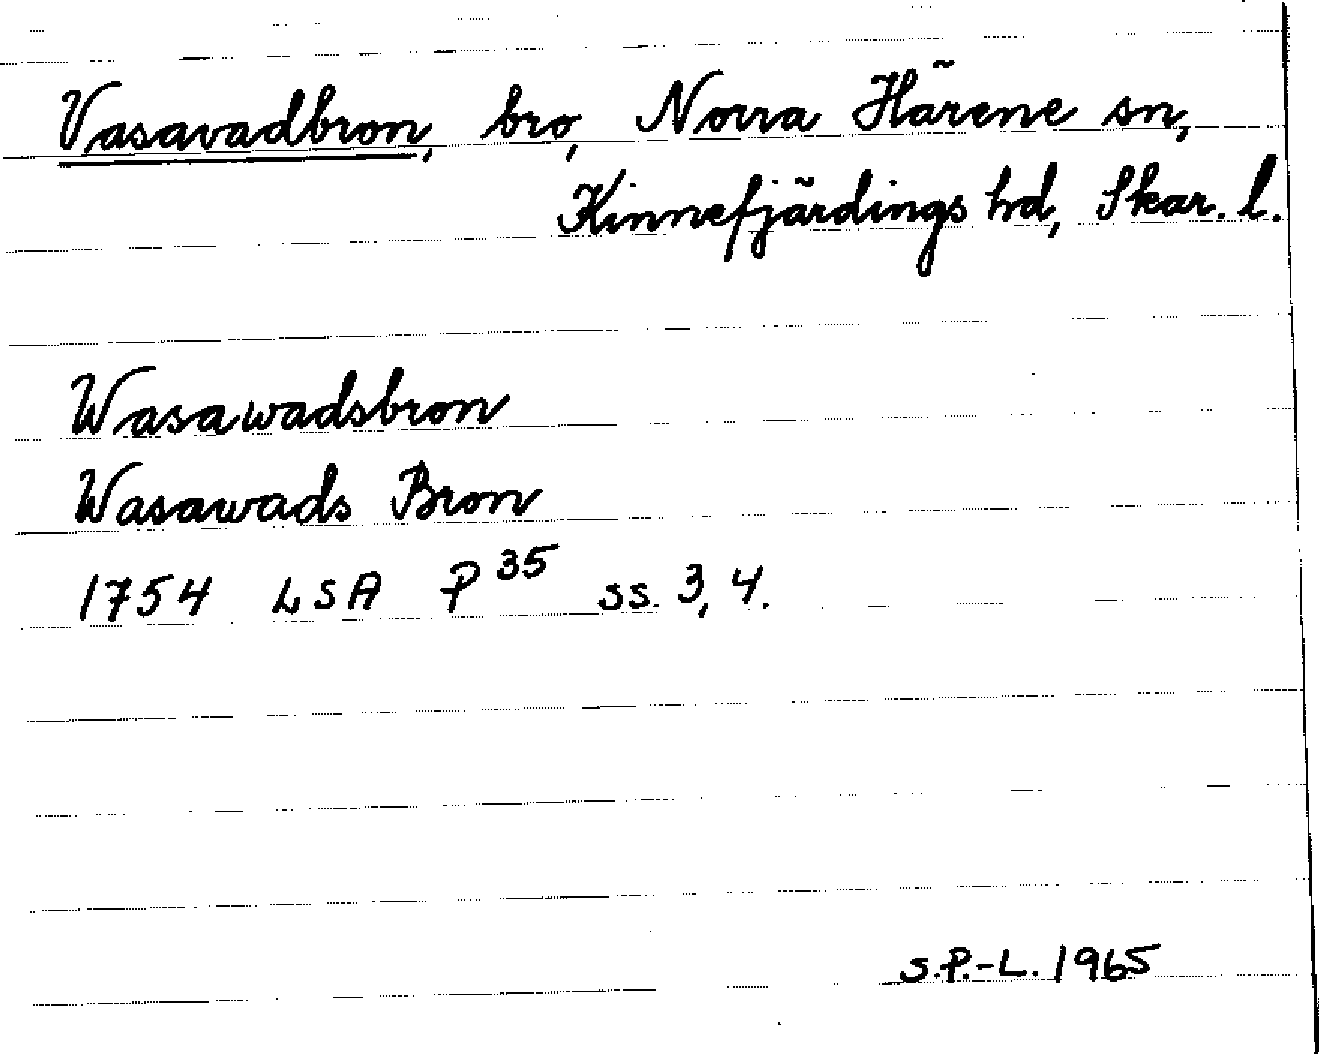 Vasavadbron, bro, Norra Härene sn,
Kinnefjärdings hd, Skar. l.
Wasawadsbron
Wasawads Bron
1754 LSA P 35 ss. 3, 4.
S.P.-L. 1965